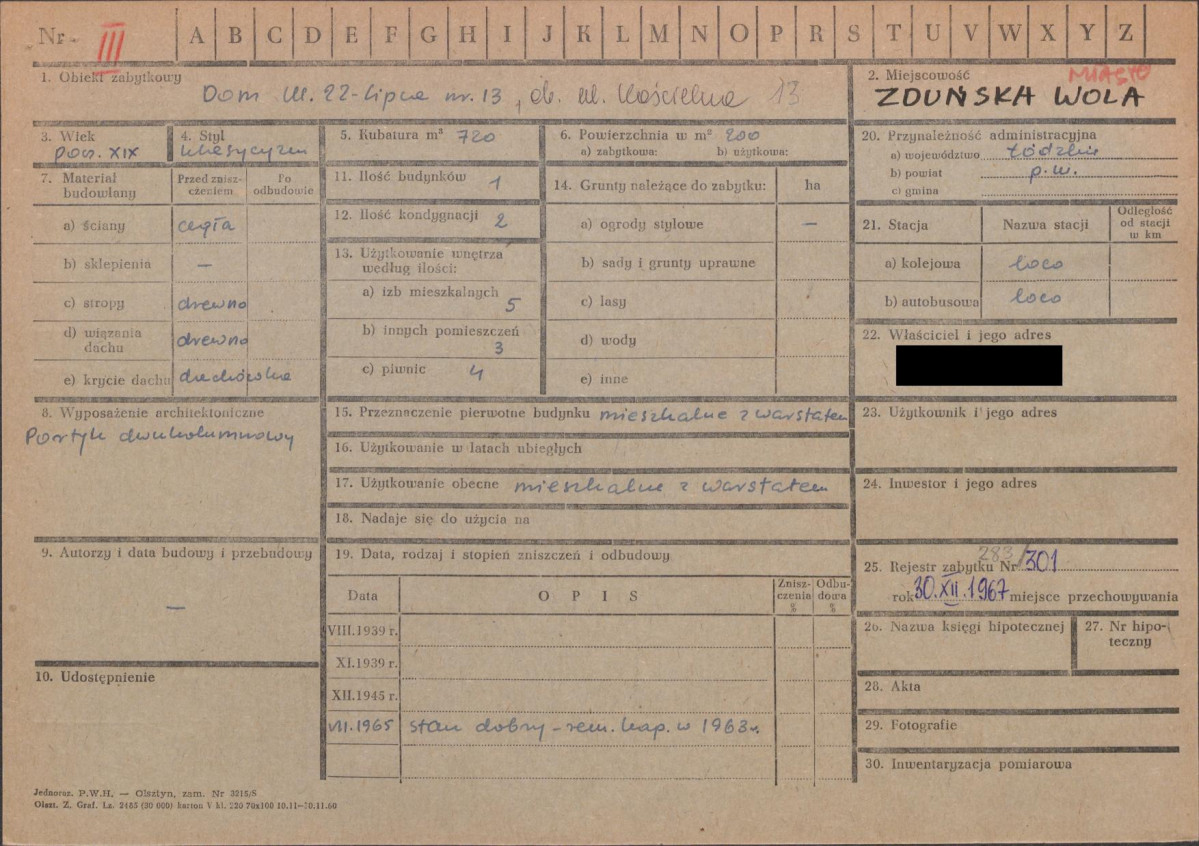 Nr III A B C D E F G H I J K L M N O P R S T U V W X Y Z
1. Obiekt zabytkowy
Dom Ul. 22-Lipca nr. 13, ob. ul. Kościelna 13
2. Miejscowość MIASTO
ZDUŃSKA WOLA
3. Wiek
poł. XIX
4. Styl
klasycyzm
5. Kubatura m³ 720
6. Powierzchnia w m² 200
a) zabytkowa: b) użytkowa:
7. Materiał budowlany
Przed zniszczeniem
Po odbudowie
a) ściany cegła
b) sklepienia —
c) stropy drewno
d) wiązania dachu drewno
e) krycie dachu dachówka
8. Wyposażenie architektoniczne
Portyk dwukolumnowy
9. Autorzy i data budowy i przebudowy
—
10. Udostępnienie
11. Ilość budynków 1
12. Ilość kondygnacji 2
13. Użytkowanie wnętrza według ilości:
a) izb mieszkalnych 5
b) innych pomieszczeń 3
c) piwnic 4
14. Grunty należące do zabytku: ha
a) ogrody stylowe —
b) sady i grunty uprawne
c) lasy
d) wody
e) inne
15. Przeznaczenie pierwotne budynku mieszkalne z warstatem
16. Użytkowanie w latach ubiegłych
17. Użytkowanie obecne mieszkalne z warstatem
18. Nadaje się do użycia na
19. Data, rodzaj i stopień zniszczeń i odbudowy
Data O P I S Zniszczenia % Odbudowa %
VIII.1939 r.
XI.1939 r.
XII.1945 r.
VII.1965 stan dobry - rem. kap. w 1963 r.
20. Przynależność administracyjna
a) województwo Łódzkie
b) powiat p.w.
c) gmina
21. Stacja Nazwa stacji Odległość od stacji w km
a) kolejowa loco
b) autobusowa loco
22. Właściciel i jego adres
23. Użytkownik i jego adres
24. Inwestor i jego adres
25. Rejestr zabytku Nr 283/301
rok 30.XII.1967 miejsce przechowywania
26. Nazwa księgi hipotecznej
27. Nr hipoteczny
28. Akta
29. Fotografie
30. Inwentaryzacja pomiarowa
Jednoraz. P.W.H. — Olsztyn, zam. Nr 3215/S
Olszt. Z. Graf. Lz. 2485 (30 000) karton V kl. 220 70x100 10.11—20.11.60